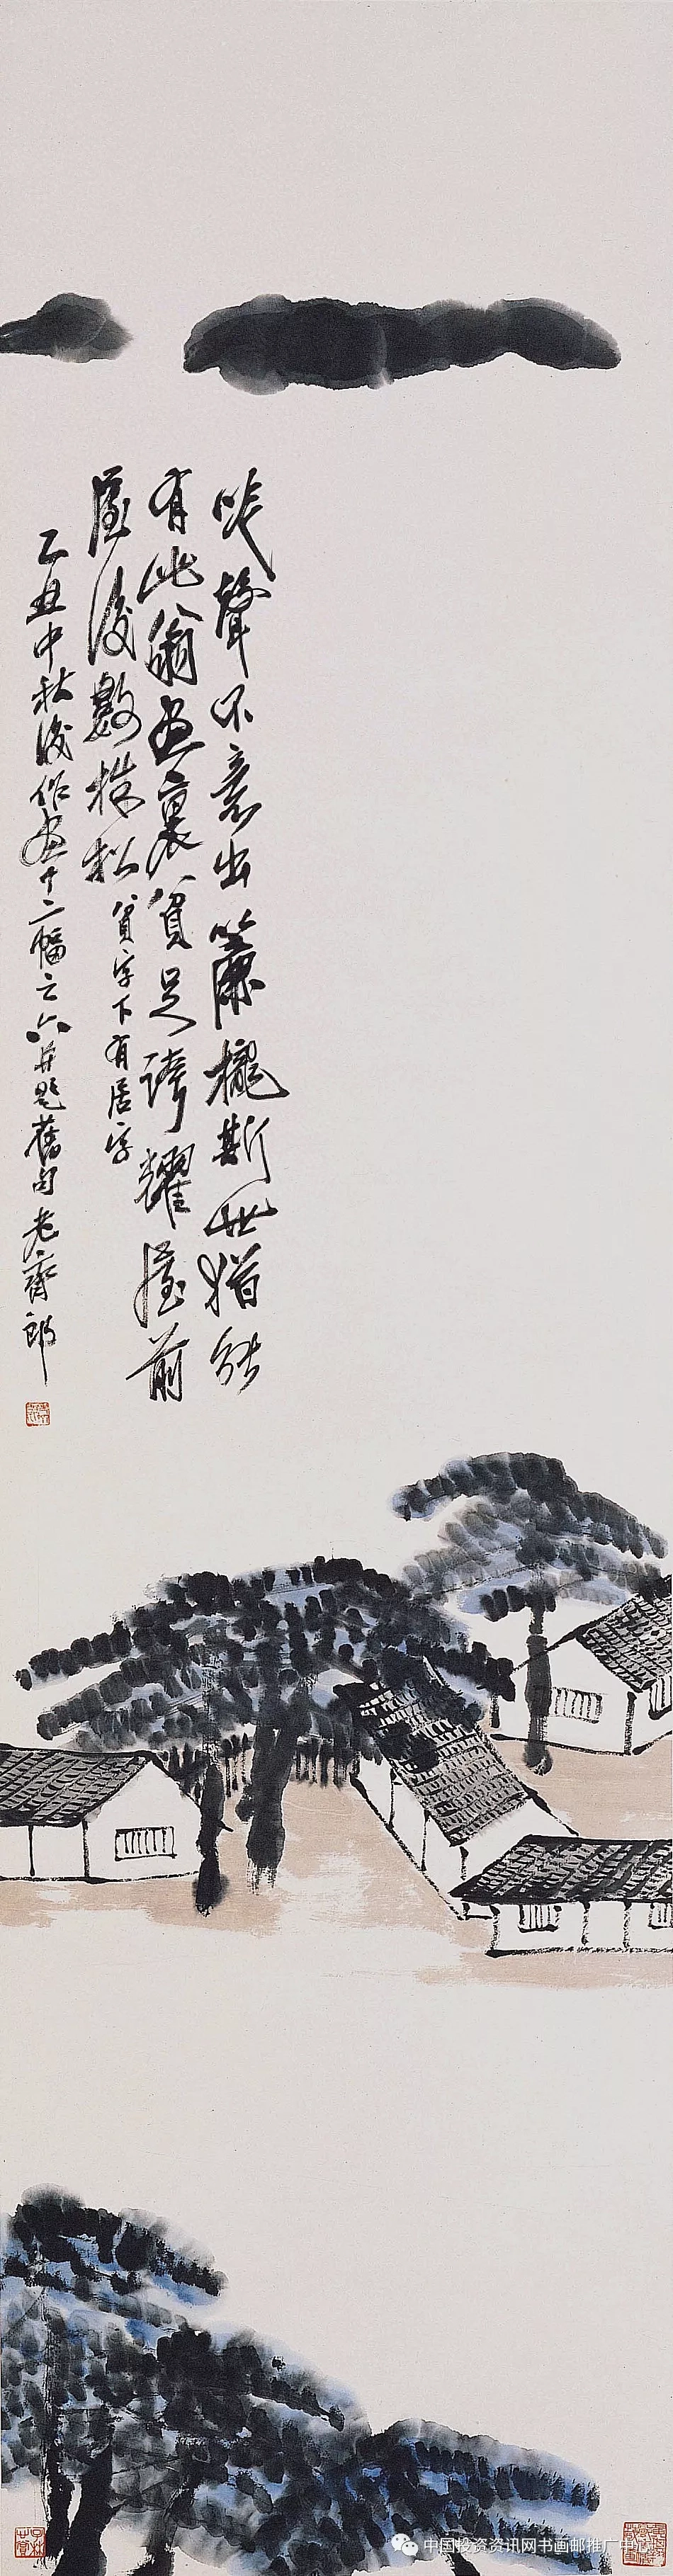 咲聲不意出簾櫳斯世猶能
有此翁畫裏貧足誇耀屋前
屋後數株松
貧字下有居字
乙丑中秋後作畫十二幅之六并題舊句老齊郎
中国投资资讯网书画邮推广中心